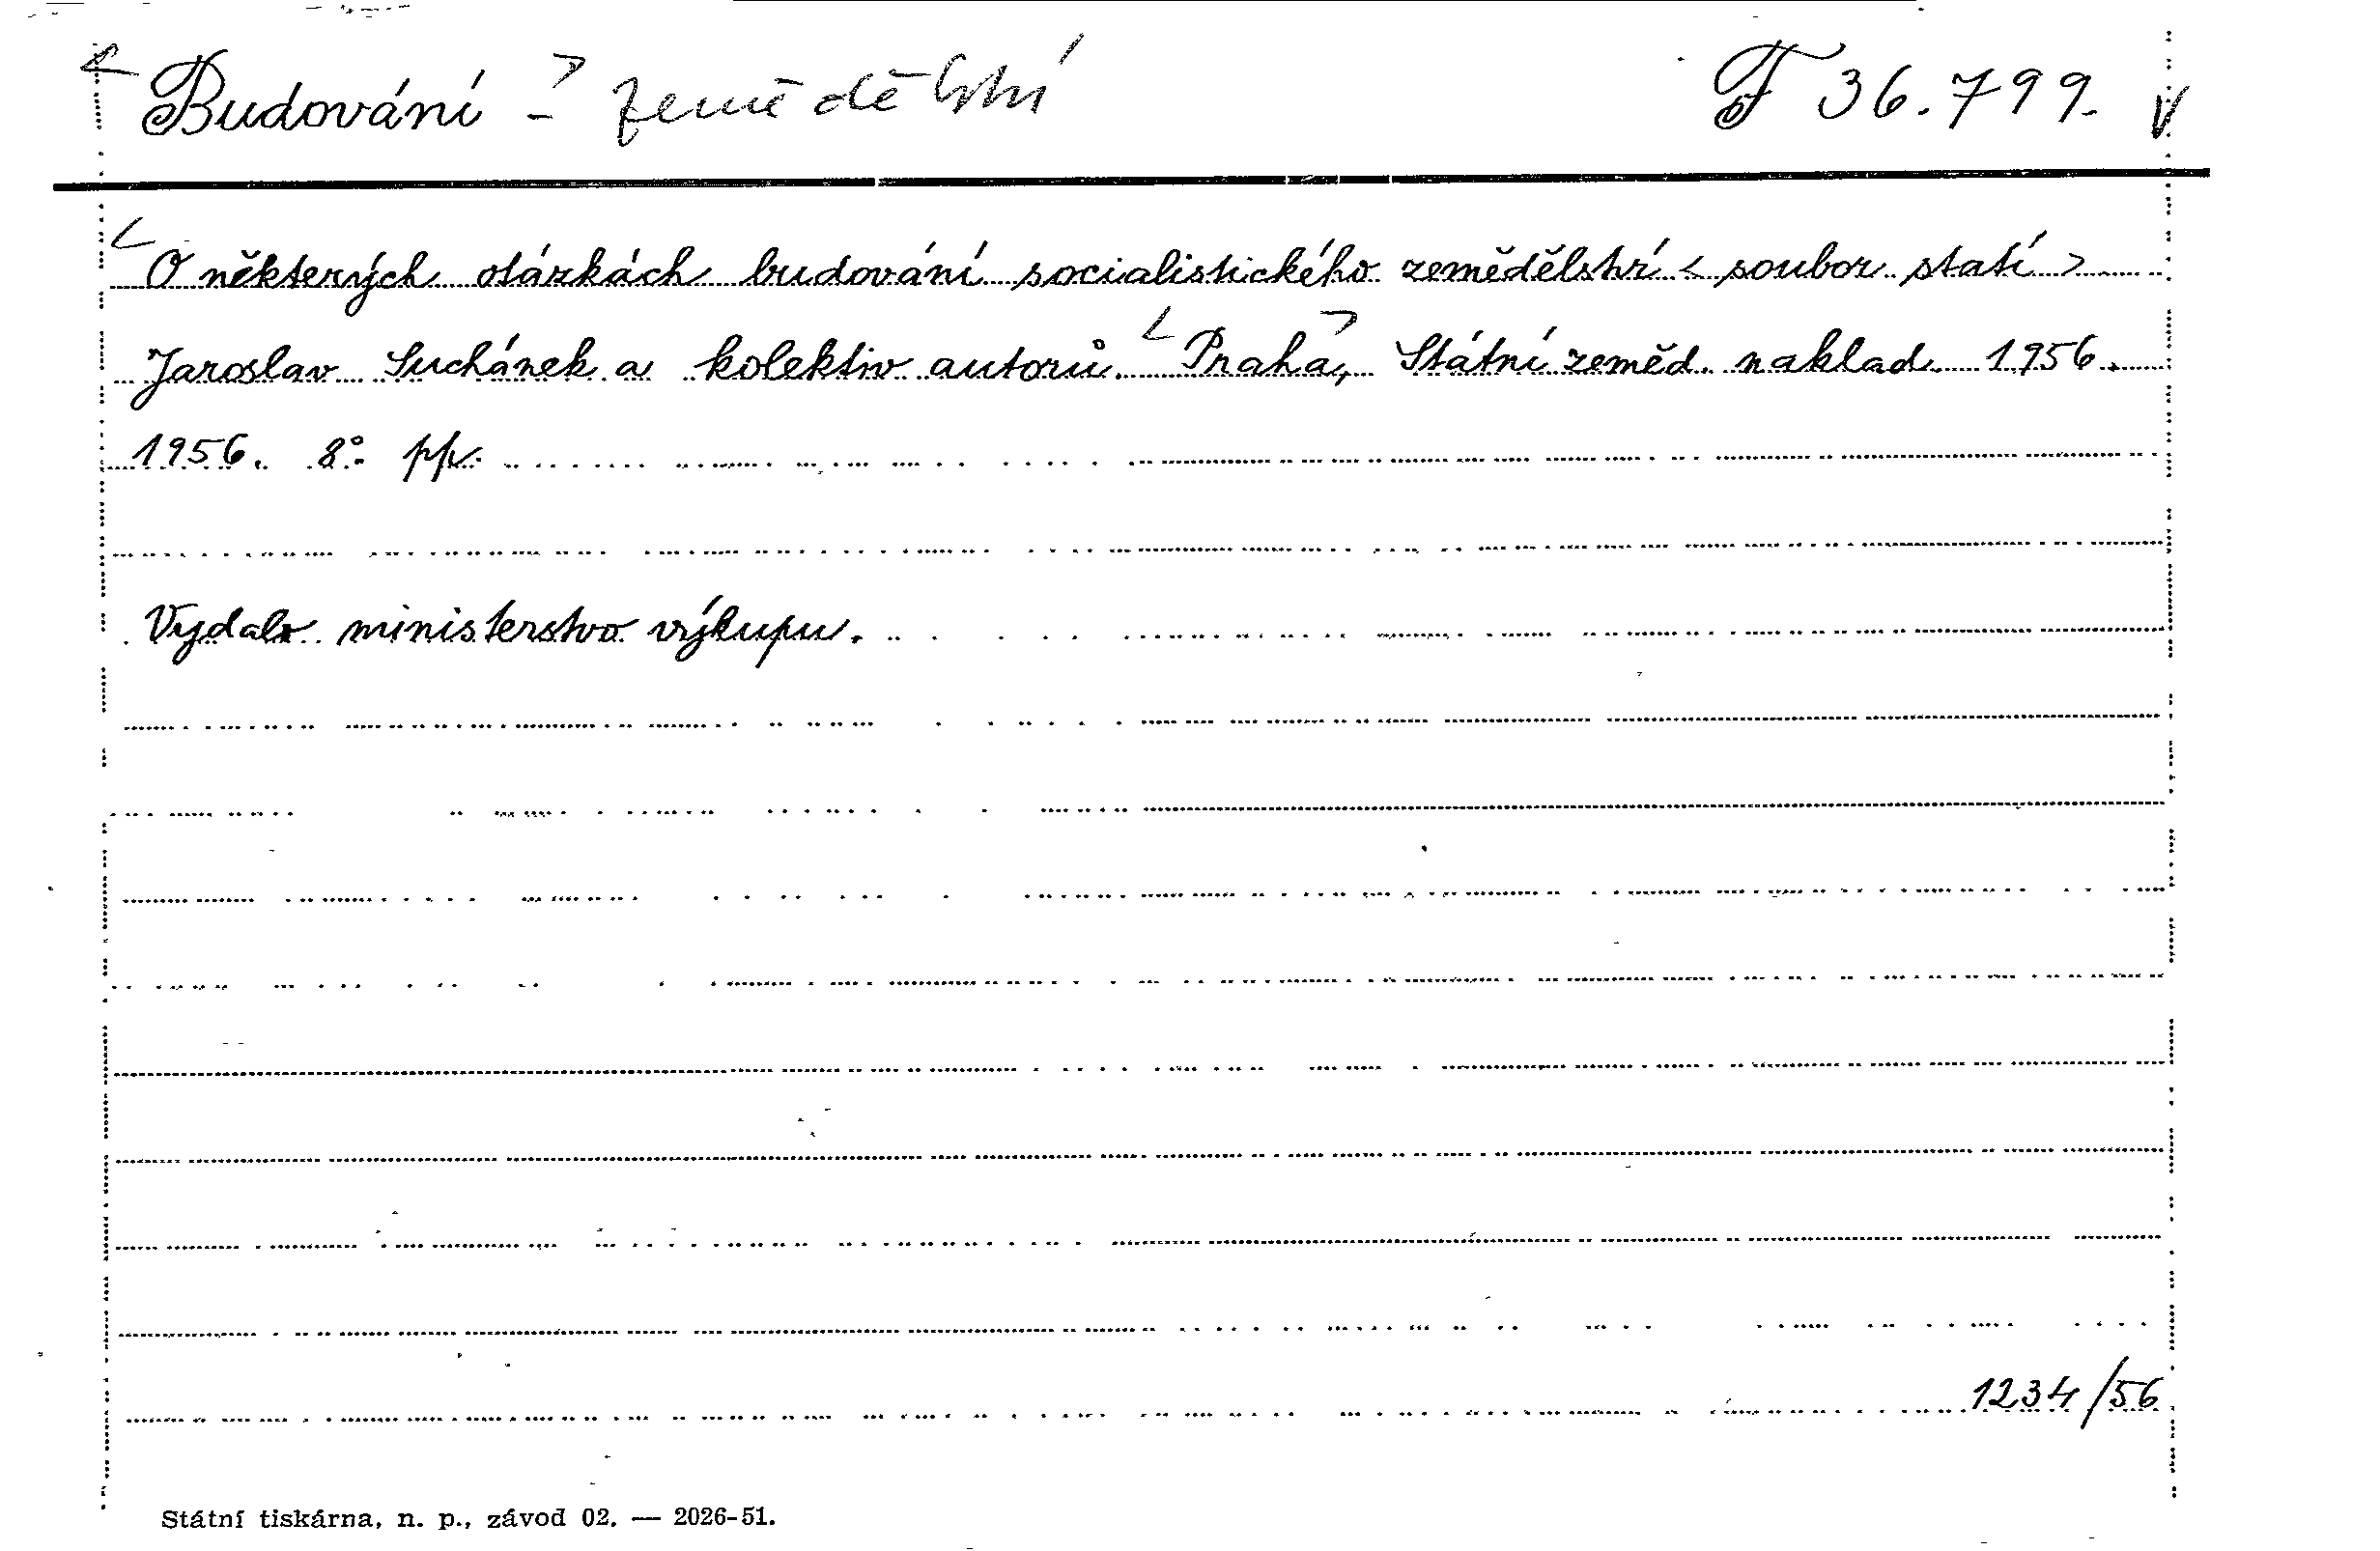 < Budování - > zemědělství F 36.799. V
< O některých otázkách budování socialistického zemědělství < soubor statí >
Jaroslav Suchánek a kolektiv autorů. < Praha >, Státní zeměd. naklad. 1956.
1956. 8° pp.
Vydalo ministerstvo výkupu.
1234/56
Státní tiskárna, n. p., závod 02. — 2026-51.